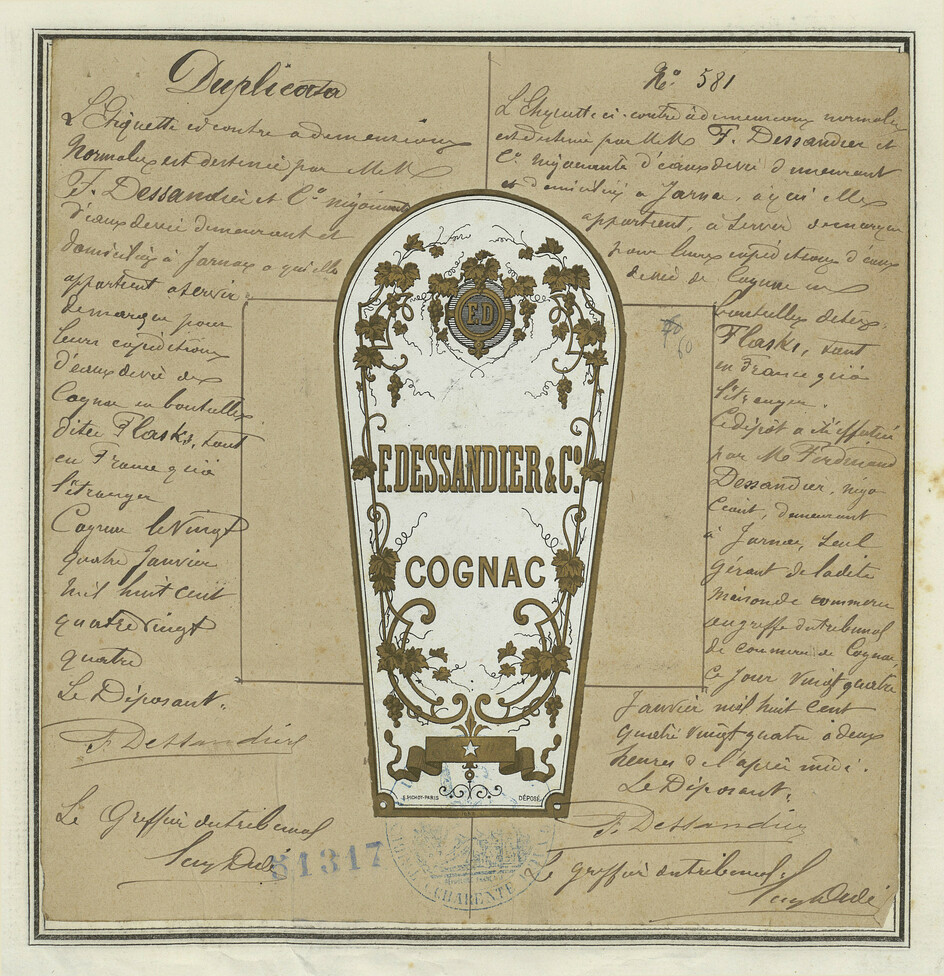 Duplicata
L'Etiquette ci contre a dimensions
Normales est destinée par MM
F. Dessandier et Cº négociants
d'eaux de vie demeurant et
domiciliés à Jarnac a qui elle
appartient a servir
de marque pour
leurs expéditions
d'eaux de vie de
Cognac en bouteilles
dites Flasks, tant
en France qu'à
l'étranger
Cognac le Vingt
quatre Janvier
mil huit cent
quatre vingt
quatre
Le Déposant.
F. Dessandier
Le Greffier du tribunal
81317
Nº 581
L'Etiquette ci-contre à dimensions normales
est destinée par MM F. Dessandier et
Cº négociants d'eaux de vie demeurant
et domiciliés a Jarnac, à qui elle
appartient, à servir de marque
pour leurs expéditions d'eaux
de vie de Cognac en
bouteilles dites
Flasks, tant
en France qu'à
l'étranger.
Ce dépôt a été effectué
par M Ferdinand
Dessandier, négo
ciant, demeurant
à Jarnac, seul
gérant de ladite
maison de commerce
au greffe du tribunal
de commerce de Cognac,
Ce jour vingt quatre
Janvier mil huit cent
quatre vingt quatre à deux
heures de l'après midi.
Le Déposant.
F. Dessandier
Le greffier du tribunal.
60
ED
F. DESSANDIER & Cº.
COGNAC
DÉPOSÉ
CHARENTE